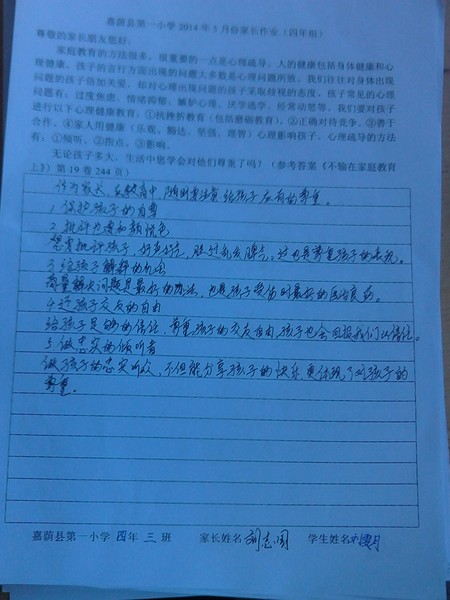 嘉荫县第一小学 2014 年 5 月份家长作业（四年组）
尊敬的家长朋友您好：
家庭教育的方法很多，很重要的一点是心理疏导。人的健康包括身体健康和心
理健康。孩子的言行方面出现的问题大多数是心理问题所致。我们往往对身体出现
问题的孩子倍加关爱，却对心理出现问题的孩子采取歧视的态度。孩子常见的心理
问题有：过度焦虑、情绪抑郁、嫉妒心理、厌学逃学、经常动怒等。我们要对孩子
进行以下心理健康教育：①抗挫折教育（包括磨砺教育）。②正确对待竞争。③善于
合作。④家人用健康（乐观、豁达、坚强、理智）心理影响孩子。心理疏导的方法
有：①倾听。②指点。③影响。
无论孩子多大，生活中您学会对他们尊重了吗？（参考答案《不输在家庭教育
上》）第 19 卷 244 页）
作为家长，在教育中，随时要注意给孩子应有的尊重。
1 保护孩子的自尊
2 批评也要和颜悦色
想要批评孩子，好声好气，胜过乱发脾气，这也是尊重孩子的表现。
3 给孩子解释的机会
商量解决问题是最好的办法，也是孩子受伤时最好的医治良药。
4 还孩子交友的自由
给孩子足够的信任，尊重孩子的交友自由，孩子也会回报我们以信任。
5 做忠实的倾听者
做孩子的忠实听众，不但能分享孩子的快乐，更体现了对孩子的
尊重。
嘉荫县第一小学 四年 三 班 家长姓名 刘志国 学生姓名